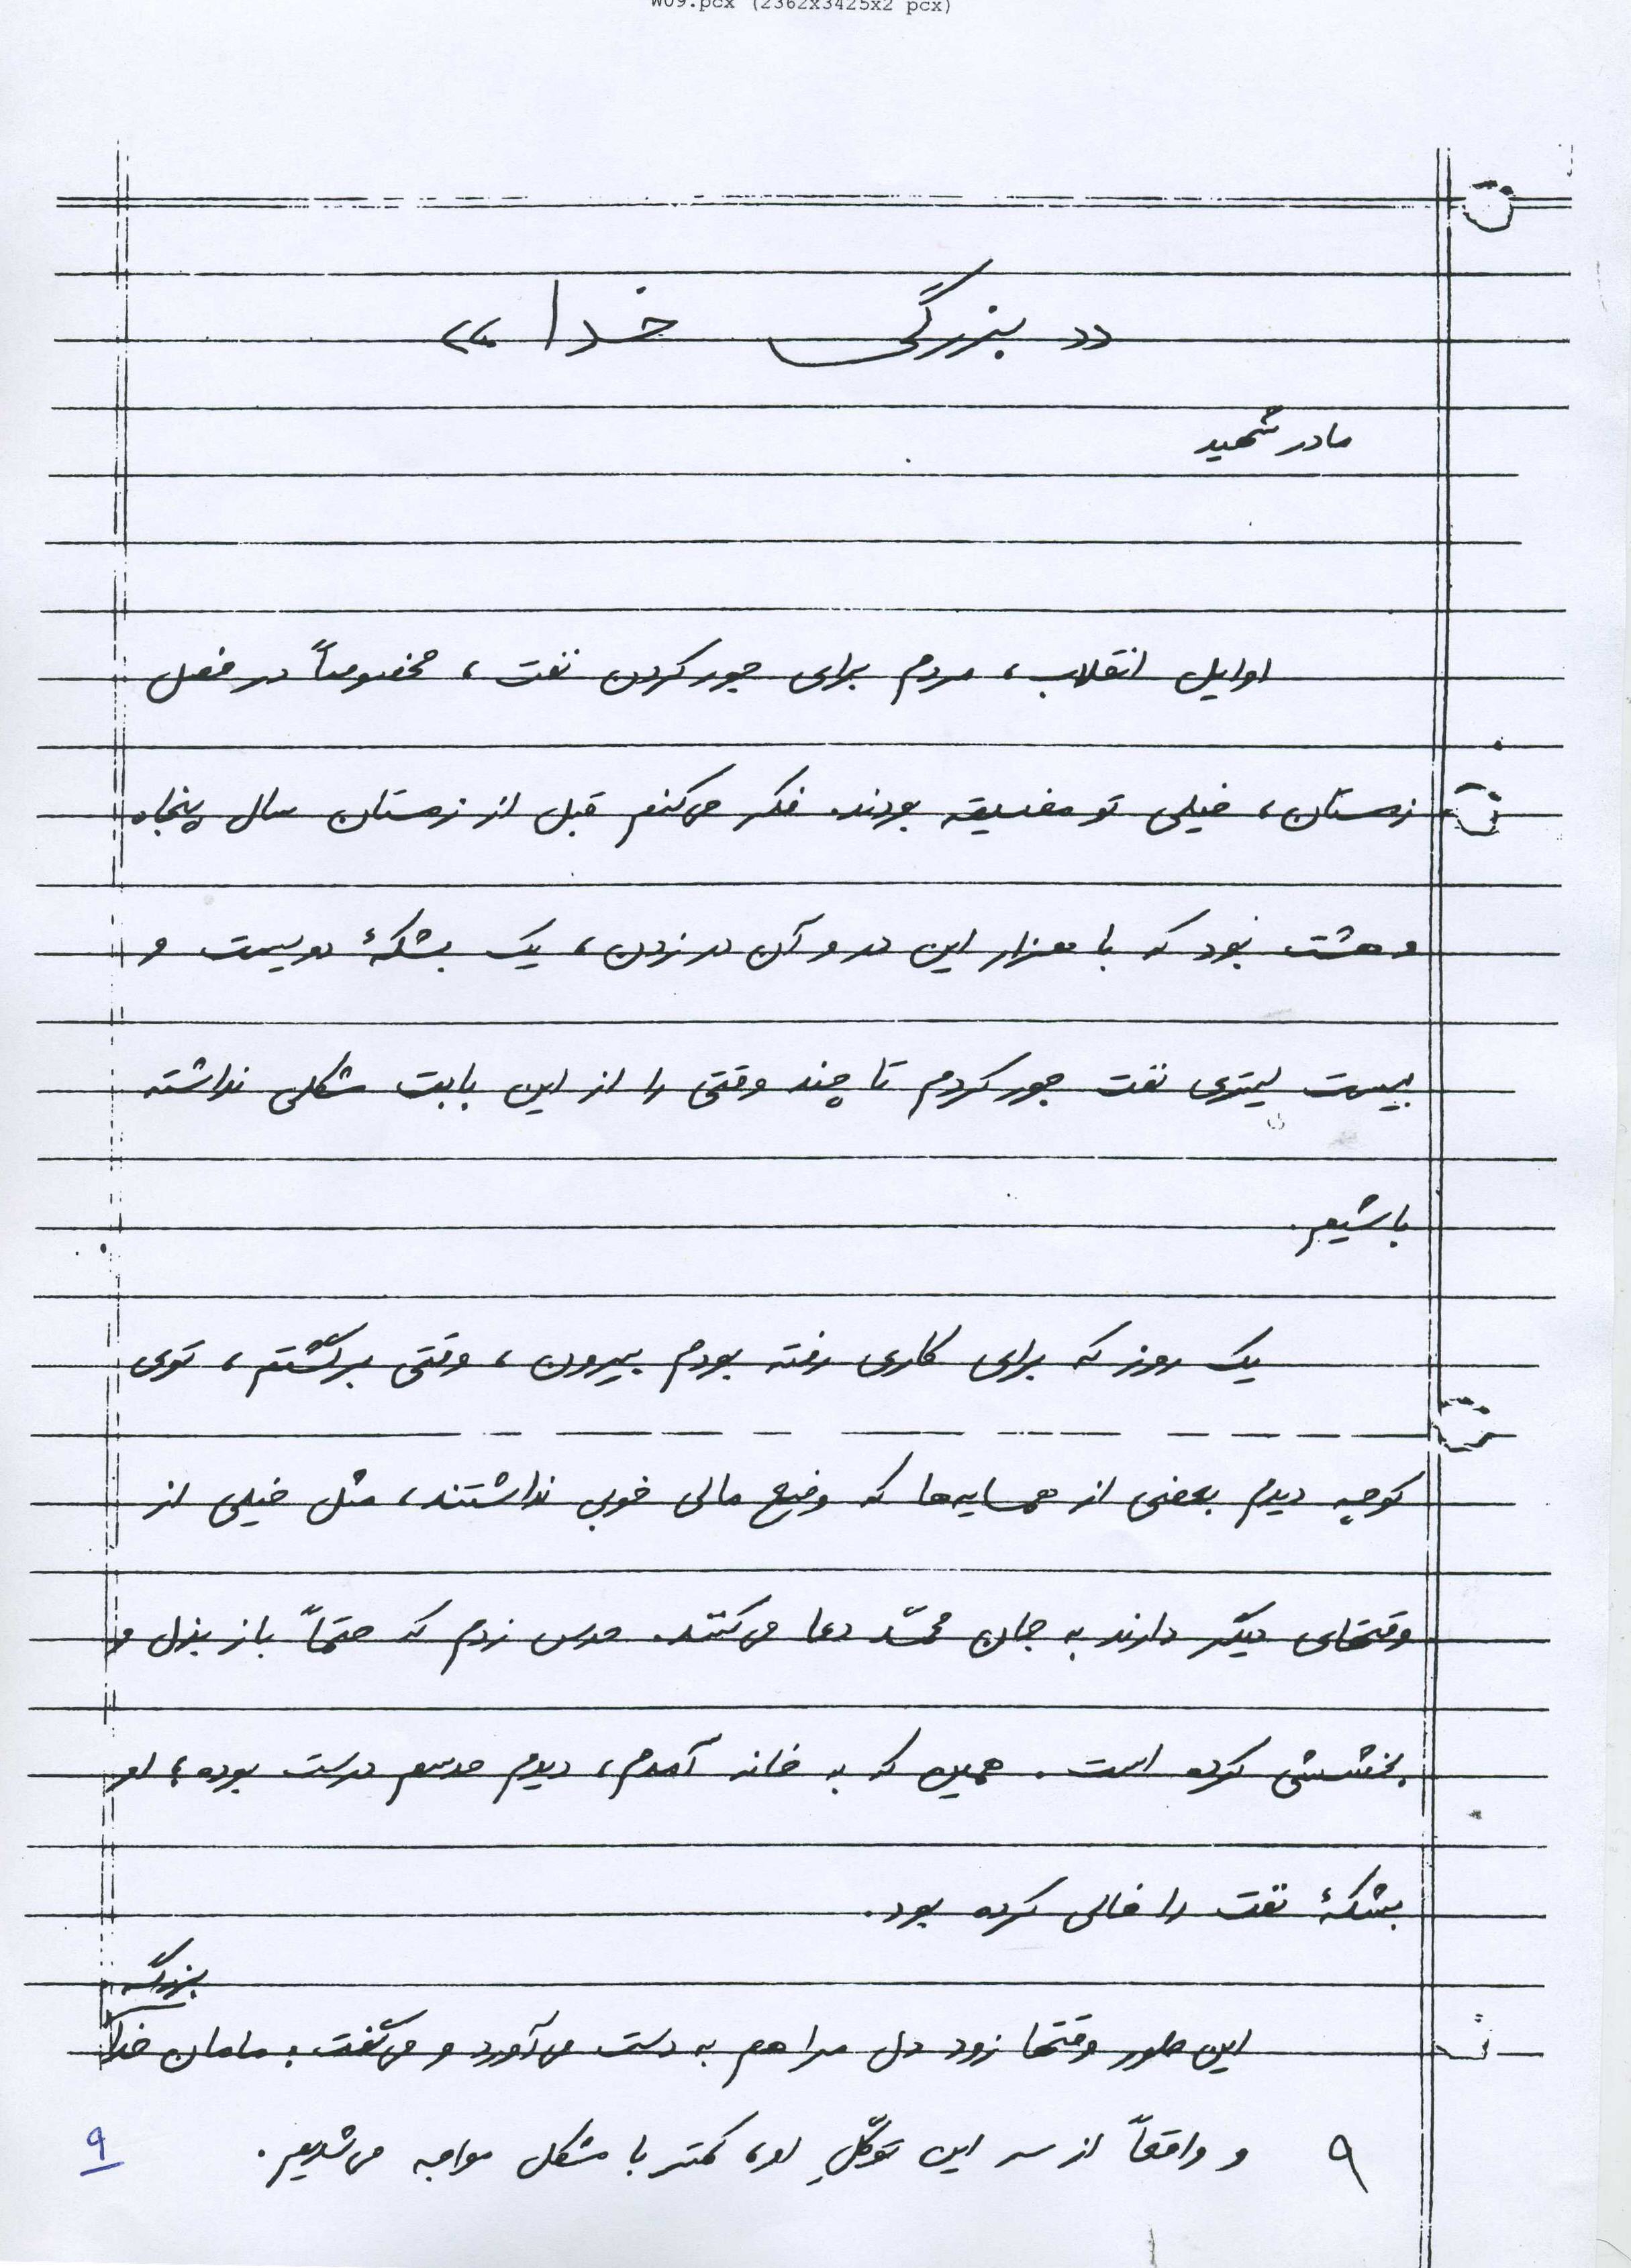 W09.pcx (2362x3425x2 pcx)
«بزرگی خدا»
مادر شهید
اوایل انقلاب، مردم برای جور کردن نفت، مخصوصاً در فصل
زمستان، خیلی تو مضیقه بودند. فکر می‌کنم قبل از زمستان سال پنجاه
و هشت بود که با هزار این در و آن در زدن، یک بشکهٔ دویست و
بیست لیتری نفت جور کردم تا چند وقتی را از این بابت مشکلی نداشته
باشیم.
یک روز که برای کاری رفته بودم بیرون، وقتی برگشتم، توی
کوچه دیدم بعضی از همسایه‌ها که وضع مالی خوبی نداشتند، مثل خیلی از
وقتهای دیگر دارند به جان محمّد دعا می‌کنند. حدس زدم که حتماً باز بذل و
بخششی کرده است. همین که به خانه آمدم، دیدم حدسم درست بوده؛ او
بشکهٔ نفت را خالی کرده بود.
بزرگه
این طور وقتها زود دل مرا هم به دست می‌آورد و می‌گفت: مامان خدا
و واقعاً از سر این توکّلِ او، کمتر با مشکل مواجه می‌شدیم.
۹
۹